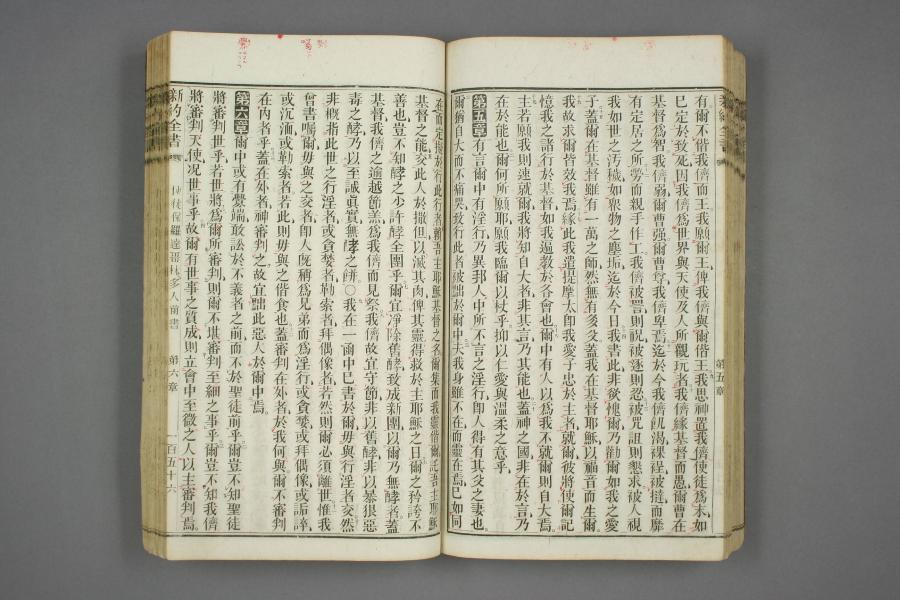 有爾不偕我儕而王我願爾王俾我儕與爾偕王我思神置我儕使徒為末如
已定於致死因我儕為世界與天使及人所觀玩者我儕緣基督而愚爾曹在
基督為智我儕弱爾曹强爾曹尊我儕卑焉迄於今我儕飢渴裸裎被撻而靡
有定居之所勞而親手作工我儕被詈則祝被逐則忍被咒詛則懇求被人視
我如世之汚穢如衆物之塵垢迄於今日我書此非欲愧爾乃勸爾如我之愛
子蓋爾在基督雖有一萬之師然無有多父蓋我在基督耶穌以福音而生爾
我故求爾皆效我焉緣此我遣提摩太卽我愛子忠於主者就爾彼將使爾記
憶我之諸行於基督如我遍教於各會也爾中有人以為我不就爾則自大焉
主若願我則速就爾我將知自大者非其言乃其能也蓋神之國非在於言乃
在於能也爾何所願耶我臨爾以杖乎抑以仁愛與溫柔之意乎
第五章 有言爾中有淫行乃異邦人中所不言之淫行卽人得有其父之妻也
爾猶自大而不痛哭致行此者被黜於爾中夫我身雖不在而靈在焉已如同
在而定擬於行此行者賴吾主耶穌基督之名爾集而我靈偕爾託吾主耶穌
基督之能交此人於撒但以滅其肉俾其靈得救於主耶穌之日爾之矜誇不
善也豈不知酵之少許酵全團乎爾宜凈除舊酵致成新團以爾乃無酵者蓋
基督我儕之逾越節羔為我儕而見祭我儕故宜守節非以舊酵非以暴狠惡
毒之酵乃以至誠真實無酵之餅〇我在一爾中已書於爾毋與行淫者交然
非概指此世之行淫者或貪婪者勒索者拜偶像者若然則爾必須離世惟我
曾書囑爾毋與之交者卽人旣稱為兄弟而為淫行或貪婪或拜偶像或詬誶
或沉湎或勒索者若此則毋與之偕食也蓋審判在外者於我何與爾不審判
在內者乎蓋在外者神審判之故宜黜此惡人於爾中焉
第六章 爾中或有釁端敢訟於不義者之前而不於聖徒前乎爾豈不知聖徒
將審判世乎若世將為爾所審判則爾不堪審判至細之事乎爾豈不知我儕
將審判天使况世事乎故爾有世事之質成則立會中至微之人以主審判焉
新約全書
使徒保羅達哥林多人前書
第六章
一百五十六